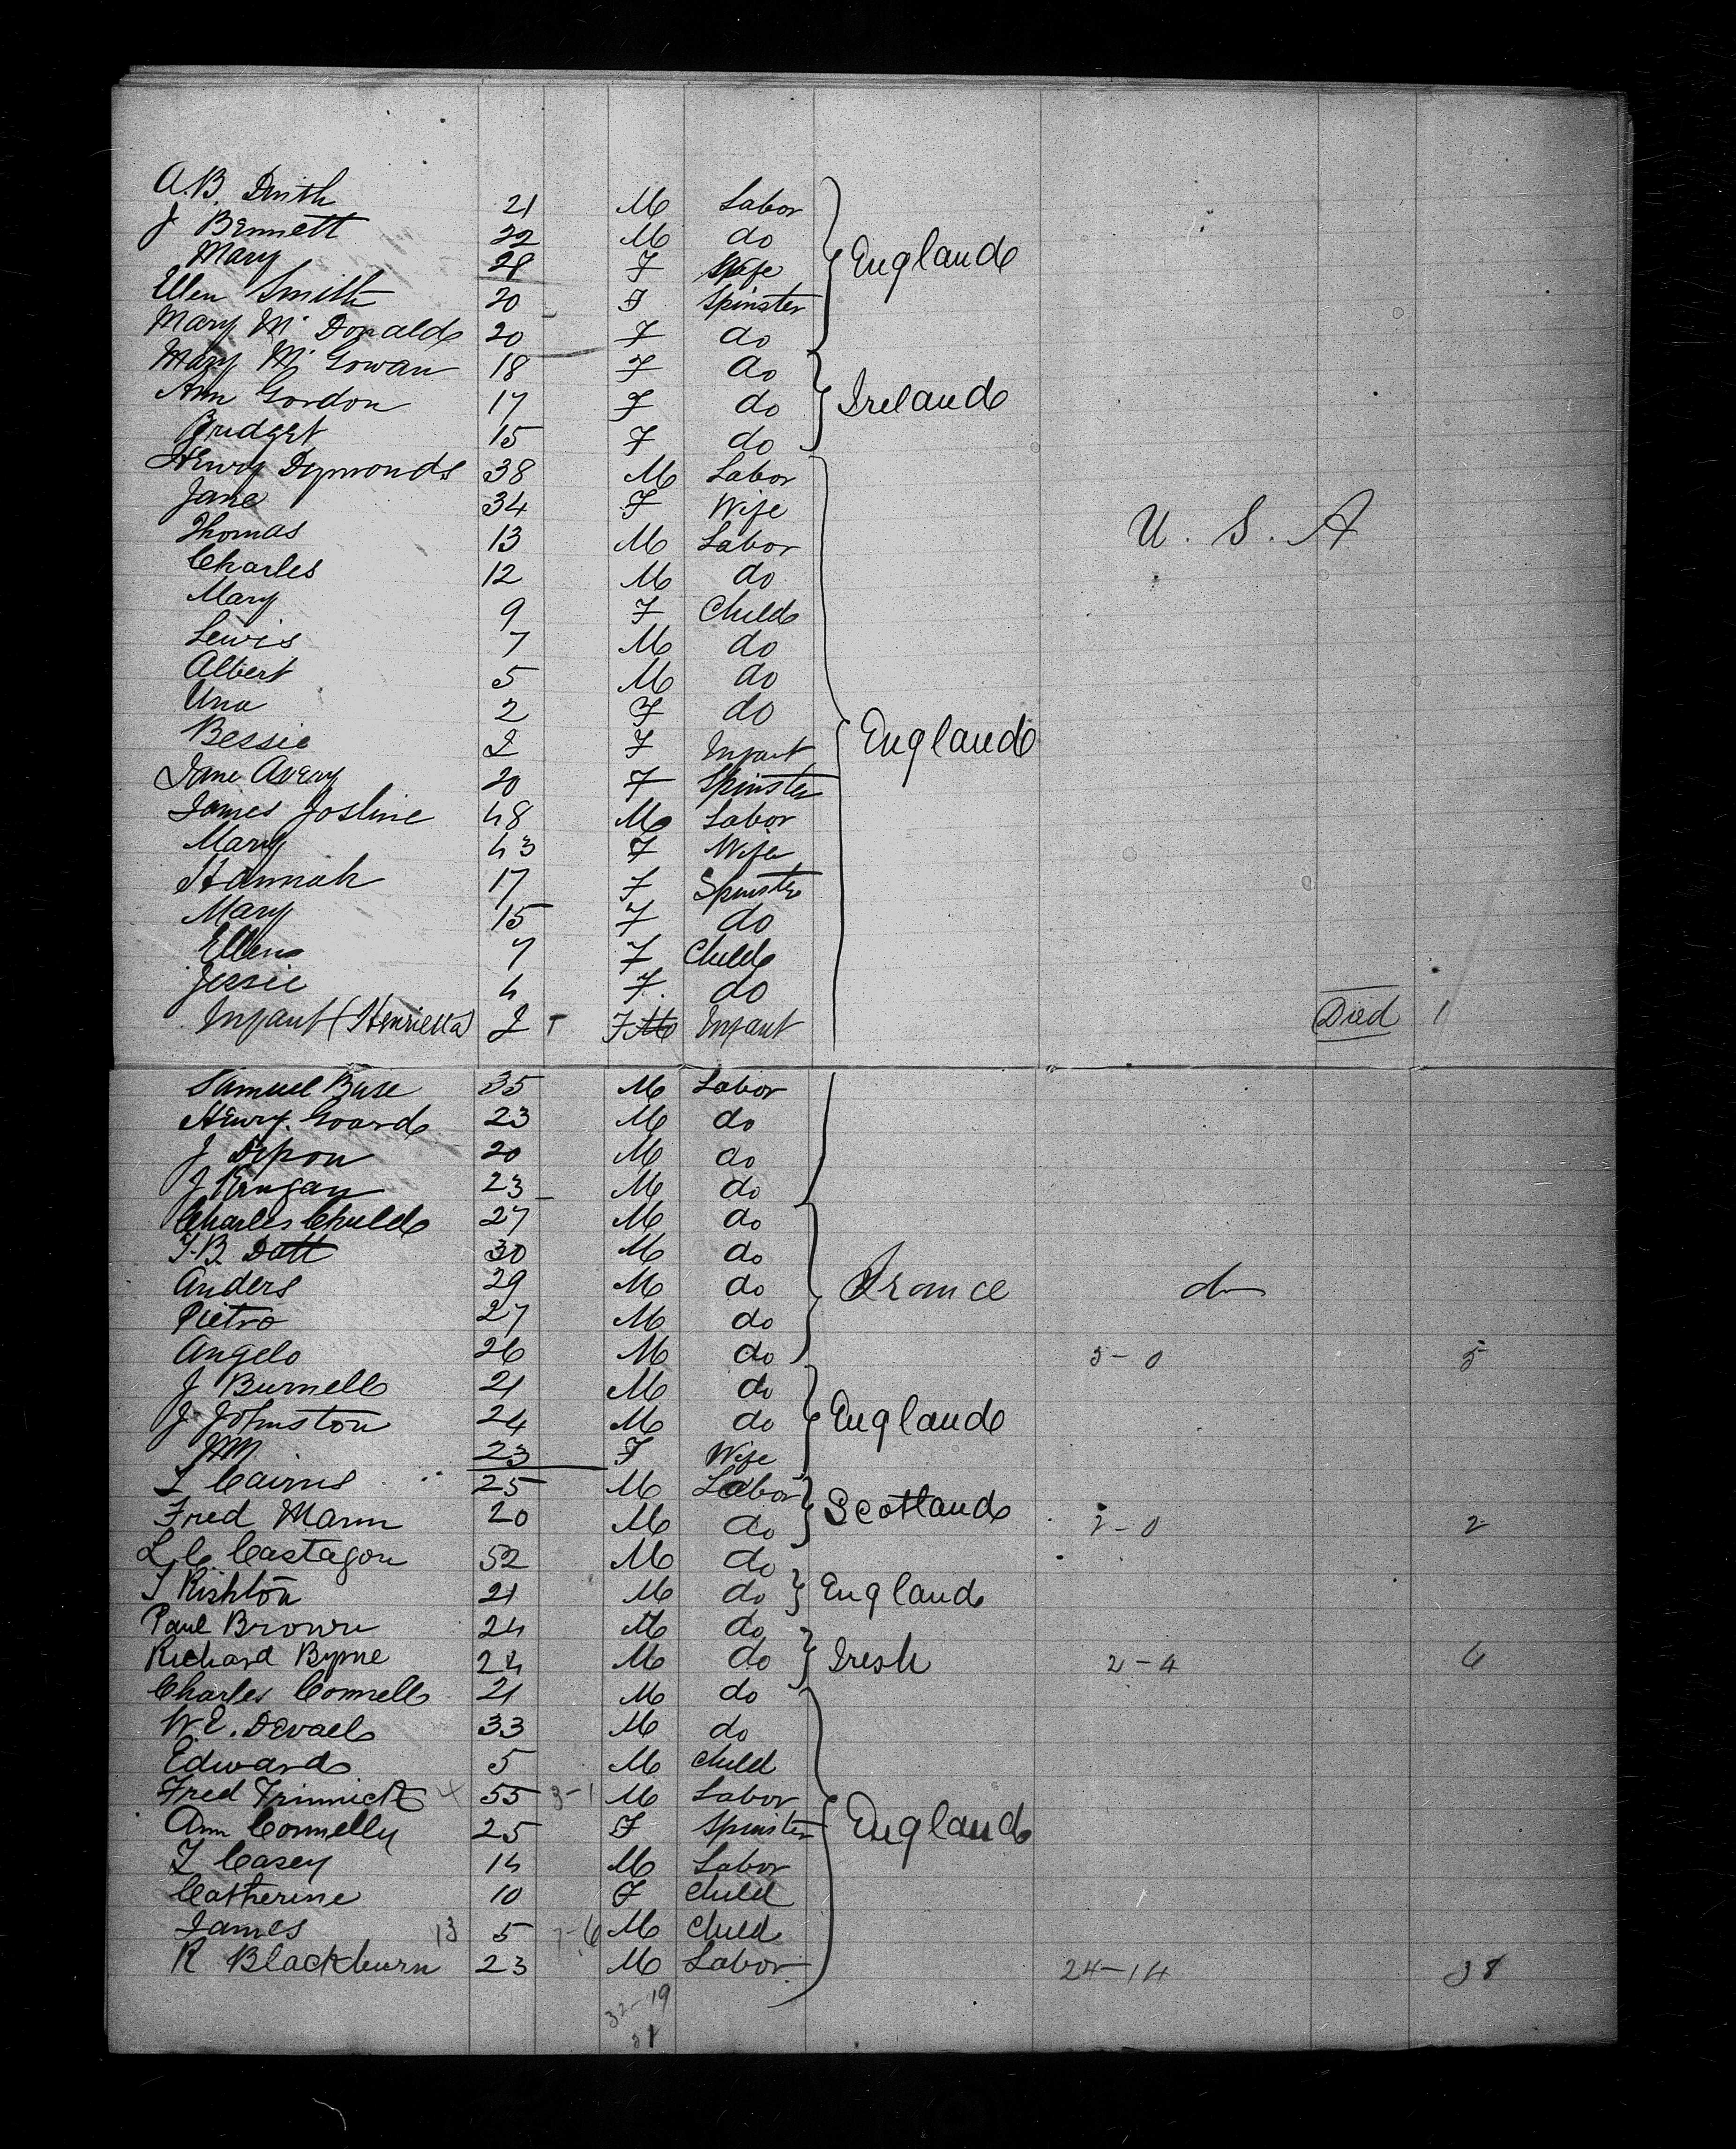 A.B. Smith 21 M Labor
J Bennett 22 M do
Mary 28 F Wife England
Ellen Smith 20 F Spinster
Mary Mc Donald 20 F do
Mary Mc Gowan 18 F do
Ann Gordon 17 F do Ireland
Bridget 15 F do
Henry Symonds 38 M Labor
Jane 34 F Wife U. S. A
Thomas 13 M Labor
Charles 12 M do
Mary 9 F Child
Lewis 7 M do
Albert 5 M do
Una 2 F do
Bessie F Infant England
Jane Avery 20 F Spinster
James Josline 48 M Labor
Mary 43 F Wife
Hannah 17 F Spinster
Mary 15 F do
Ellen 7 F Child
Jessie 4 F do
Infant (Henrietta) F Infant Died 1
Samuel 35 M Labor
Henry Goard 23 M do
J 20 M do
J 23 M do
Charles Child 27 M do
30 M do
Anders 29 M do France do
Pietro 27 M do
Angelo 26 M do 5-0 5
J Burnell 21 M do
J Johnston 24 M do England
23 F Wife
Cairns 25 M Labor
Fred Mann 20 M do Scotland 2-0 2
52 M do
Rishton 21 M do England
Paul Brown 24 M do
Richard Byrne 24 M do Iresh 2-4 6
Charles Connell 21 M do
W.E. Devael 33 M do
Edward 5 M Child
Fred 4 55 3-1 M Labor
Ann Connelly 25 F Spinster England
Casey 14 M Labor
Catherine 10 F Child
James 13 5 7-6 M Child
R Blackburn 23 M Labor 24-14 38
32-19